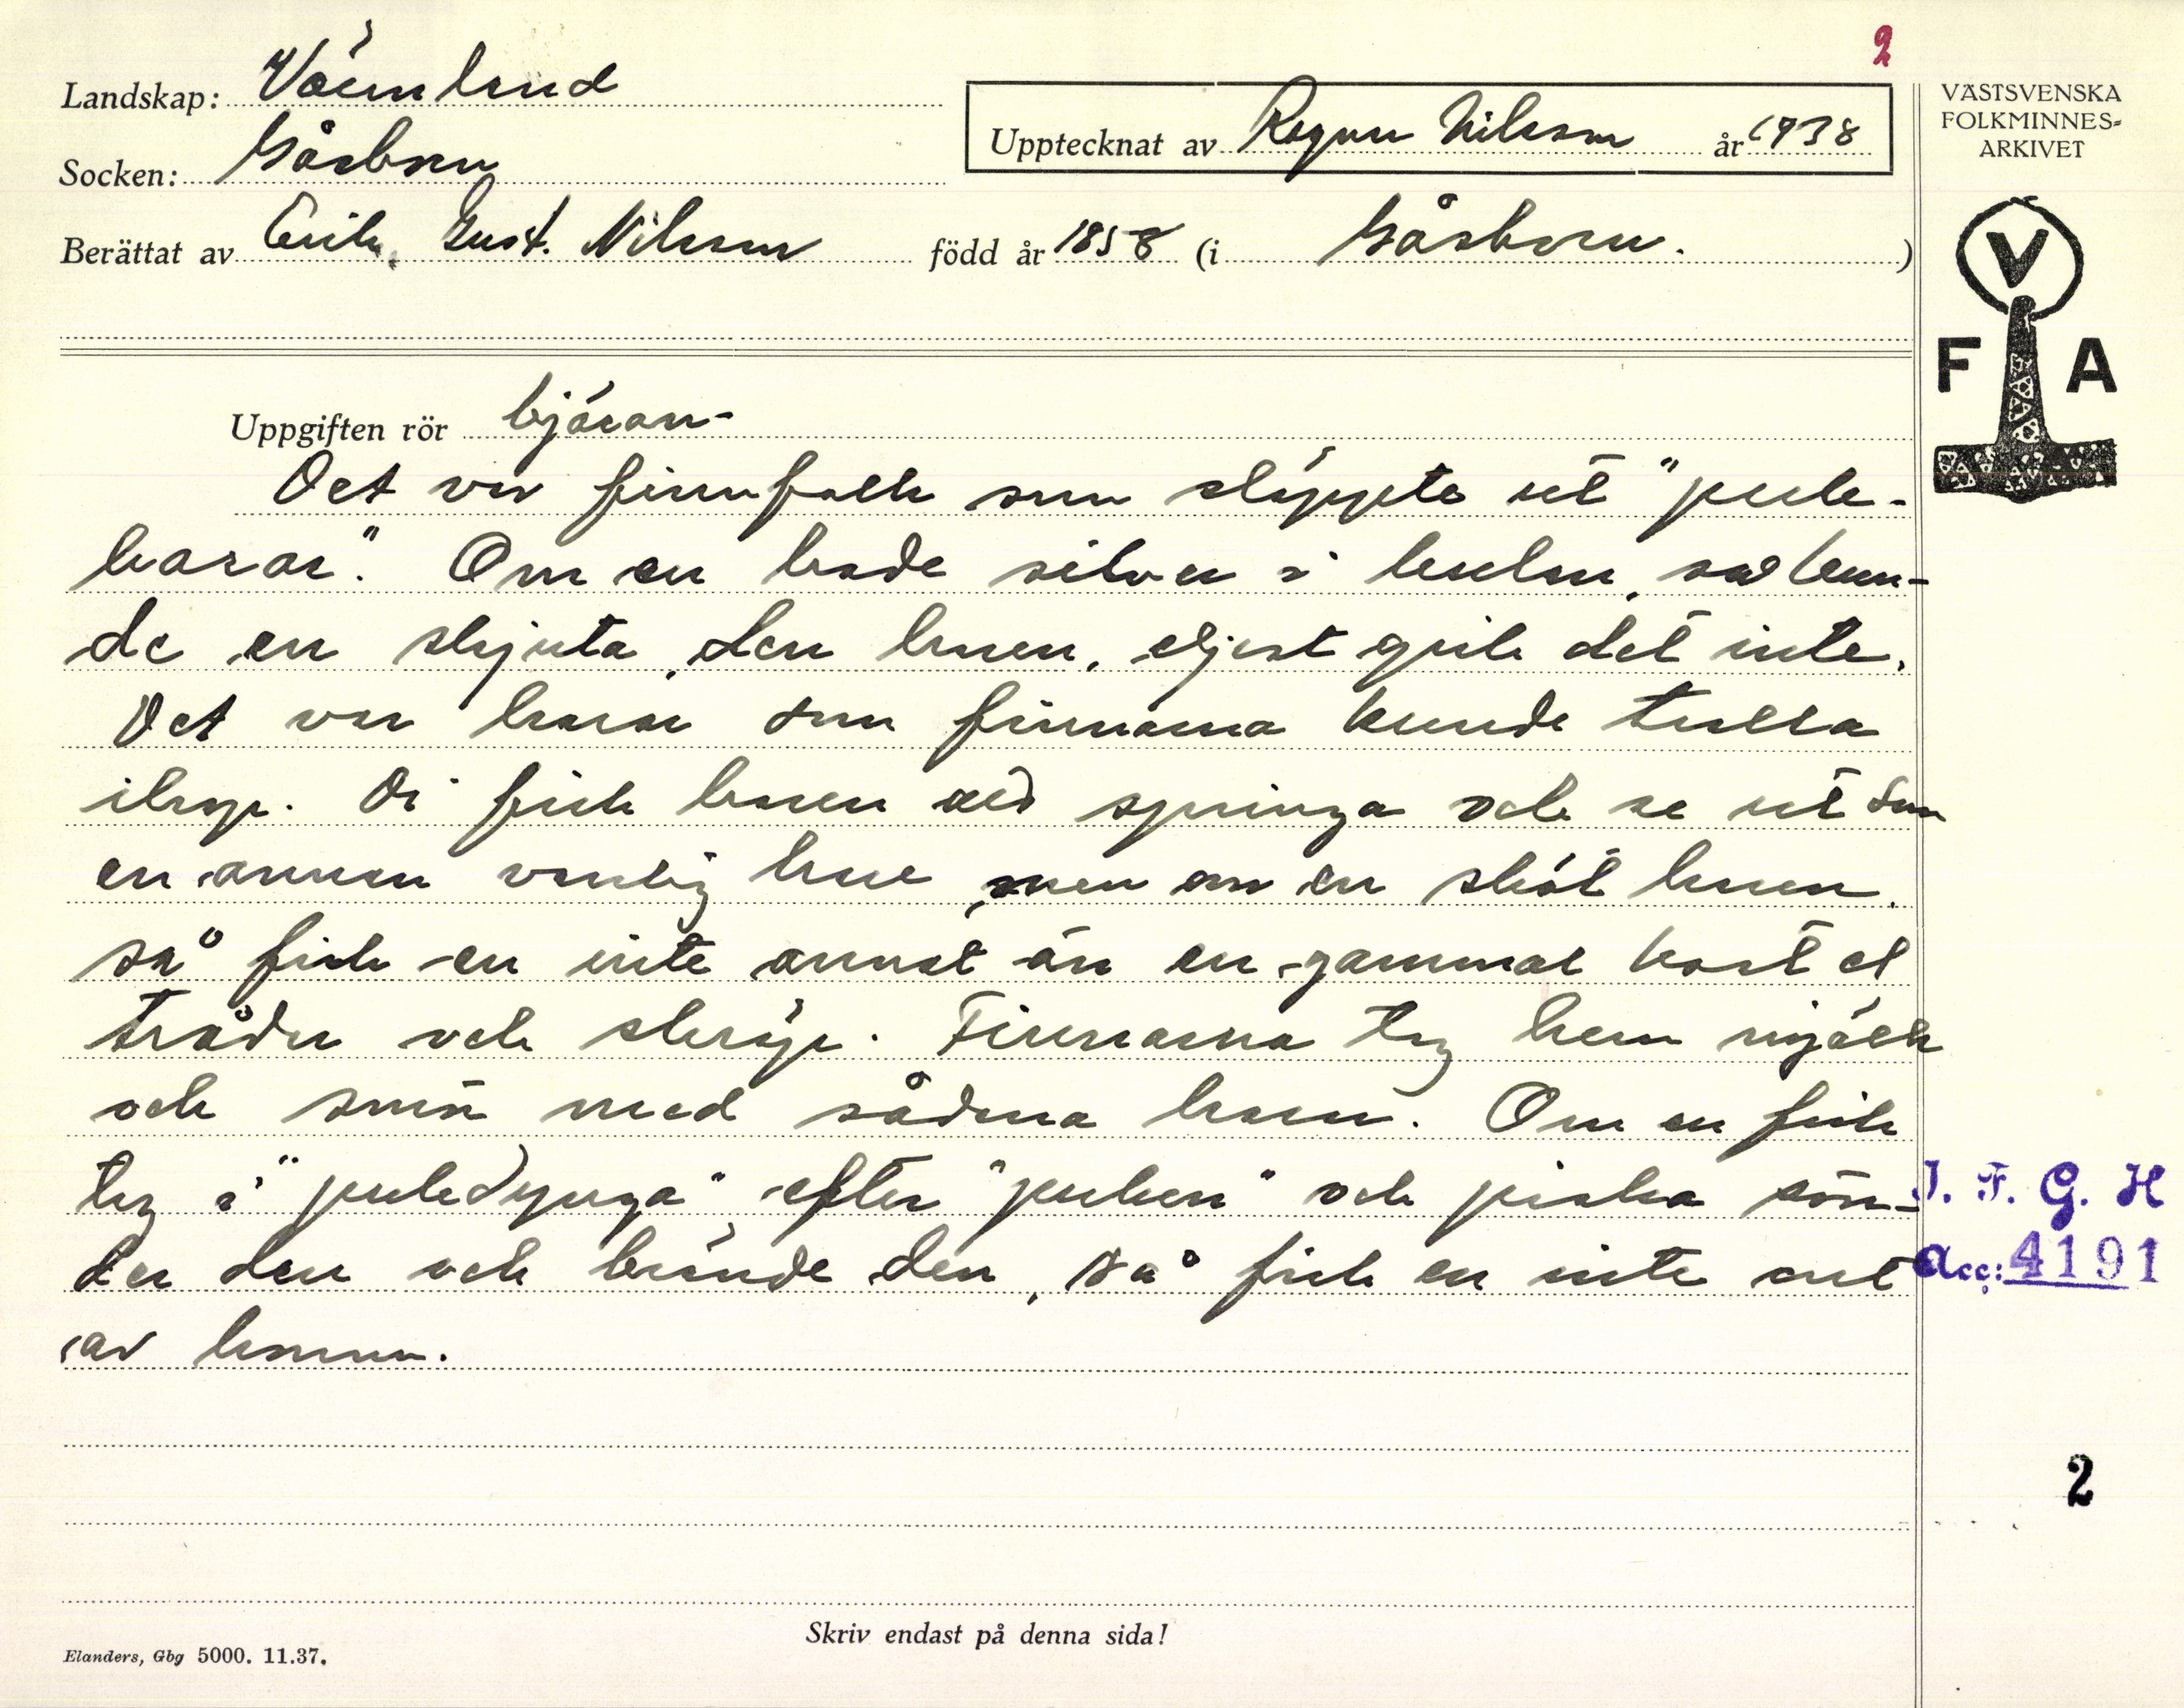 2
Landskap: Värmland
Socken: Gåsborn
Upptecknat av Ragnar Nilsson år 1938
Berättat av Erik Gust. Nilsson född år 1858 (i Gåsborn.)
VÄSTSVENSKA
FOLKMINNES-
ARKIVET
V
F A
Uppgiften rör bjäran-
Det var finnfolk som släppte ut "puke-
harar". Om en hade silver i beseln, så kun-
de en skjuta den haren, eljest gick det inte.
Det var harar som finnarna kunde trolla
ihop. Di fick haren att springa och se ut som
en annan vanlig hare, men om en sköt haren,
så fick en inte annat än en gammal kvast el
trådar och skräp. Finnarna tog hem mjölk
och smör med sådana harar. Om en fick
tag i "pukedynga" efter "puken" och piska sön-
der den och brände den, så fick en inte ont
av haren.
I. F. G. H
Acc: 4191
2
Skriv endast på denna sida!
Elanders, Gbg 5000. 11.37.